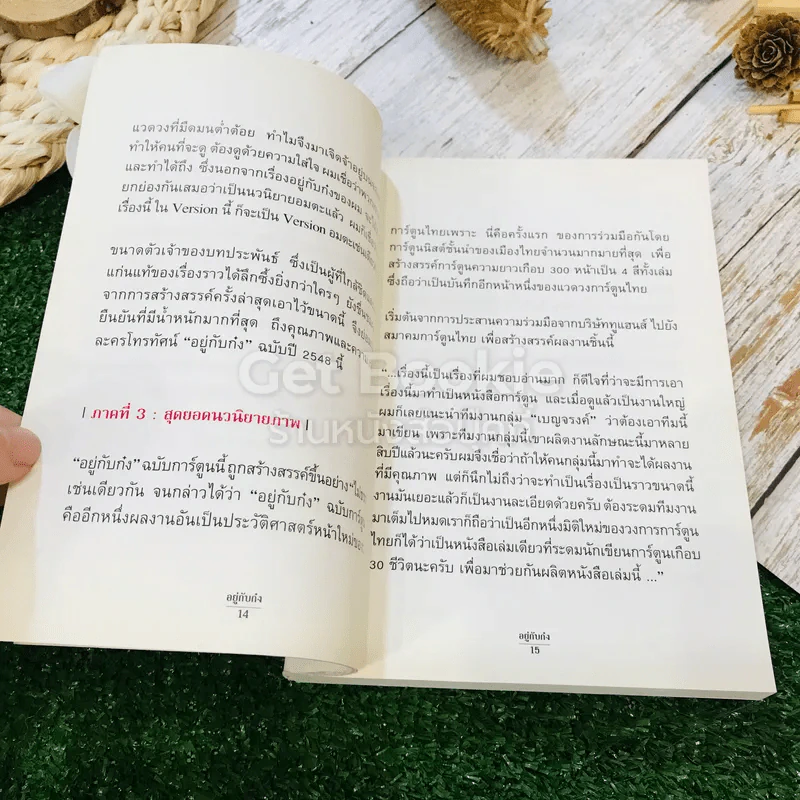 แวดวงที่มืดมนต่ำต้อย ทำไมจึงมาเจิดจ้าอยู่บน
ทำให้คนที่จะดู ต้องดูด้วยความใส่ใจ ผมเชื่อว่า
และทำได้ถึง ซึ่งนอกจากเรื่องอยู่กับก๋งของผม
ยกย่องกันเสมอว่าเป็นนวนิยายอมตะแล้ว
เรื่องนี้ ใน Version นี้ ก็จะเป็น Version อมตะเช่น
ขนาดตัวเจ้าของบทประพันธ์ ซึ่งเป็นผู้ที่ใกล้ชิด
แก่นแท้ของเรื่องราวได้ลึกซึ้งยิ่งกว่าใครๆ ยังชื่น
จากการสร้างสรรค์ครั้งล่าสุดเอาไว้ขนาดนี้
ยืนยันที่มีน้ำหนักมากที่สุด ถึงคุณภาพและ
ละครโทรทัศน์ “อยู่กับก๋ง” ฉบับปี 2548 นี้
| ภาคที่ 3 : สุดยอดนวนิยายภาพ |
“อยู่กับก๋ง” ฉบับการ์ตูนนี้ ถูกสร้างสรรค์ขึ้นอย่าง
เช่นเดียวกัน จนกล่าวได้ว่า “อยู่กับก๋ง” ฉบับ
คืออีกหนึ่งผลงานอันเป็นประวัติศาสตร์หน้าใหม่
อยู่กับก๋ง
14
การ์ตูนไทยเพราะ นี่คือครั้งแรก ของการร่วมมือกันโดย
การ์ตูนนิสต์ชั้นนำของเมืองไทยจำนวนมากมายที่สุด เพื่อ
สร้างสรรค์การ์ตูนความยาวเกือบ 300 หน้าเป็น 4 สีทั้งเล่ม
ซึ่งถือว่าเป็นบันทึกอีกหน้าหนึ่งของแวดวงการ์ตูนไทย
เริ่มต้นจากการประสานความร่วมมือจากบริษัททูแฮนส์ ไปยัง
สมาคมการ์ตูนไทย เพื่อสร้างสรรค์ผลงานชิ้นนี้
“...เรื่องนี้เป็นเรื่องที่ผมชอบอ่านมาก ก็ดีใจที่ว่าจะมีการเอา
เรื่องนี้มาทำเป็นหนังสือการ์ตูน และเมื่อดูแล้วเป็นงานใหญ่
ผมก็เลยแนะนำทีมงานกลุ่ม “เบญจรงค์” ว่าต้องเอาทีมนี้
มาเขียน เพราะทีมงานกลุ่มนี้เขาผลิตงานลักษณะนี้มาหลาย
สิบปีแล้วนะครับผมจึงเชื่อว่าถ้าให้คนกลุ่มนี้มาทำจะได้ผลงาน
ที่มีคุณภาพ แต่ก็นึกไม่ถึงว่าจะทำเป็นเรื่องราวขนาดนี้
งานมันเยอะแล้วก็เป็นงานละเอียดด้วยครับ ต้องระดมทีมงาน
มาเต็มไปหมดเราก็ถือว่าเป็นอีกหนึ่งมิติใหม่ของวงการการ์ตูน
ไทยก็ได้ว่าเป็นหนังสือเล่มเดียวที่ระดมนักเขียนการ์ตูนเกือบ
30 ชีวิตนะครับ เพื่อมาช่วยกันผลิตหนังสือเล่มนี้ ...”
อยู่กับก๋ง
15
Get Bookie